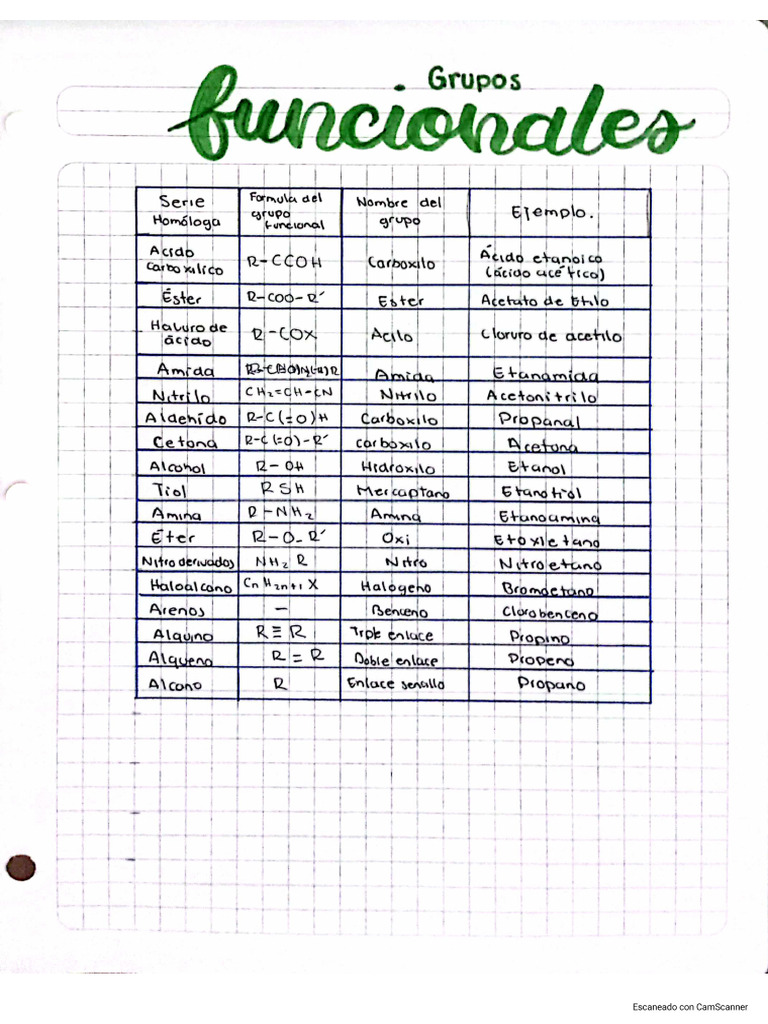 Grupos
funcionales
Serie Homóloga | Formula del grupo funcional | Nombre del grupo | Ejemplo.
Acido carboxilico | R-CCOH | Carboxilo | Ácido etanoico (ácido acético)
Éster | R-COO-R' | Ester | Acetato de Etilo
Haluro de ácido | R-COX | Acilo | Cloruro de acetilo
Amida | Amida | Etanamida
Nitrilo | CH₂=CH-CN | Nitrilo | Acetonitrilo
Aldehido | R-C(=O)H | Carboxilo | Propanal
Cetona | R-C(=O)-R' | carboxilo | Acetona
Alcohol | R-OH | Hidroxilo | Etanol
Tiol | RSH | Mercaptano | Etanotiol
Amina | R-NH₂ | Amina | Etanoamina
Éter | R-O-R' | Oxi | Etoxietano
Nitro derivados | NH₂ R | Nitro | Nitroetano
Haloalcano | CnH₂n+1 X | Halogeno | Bromoetano
Arenos | - | Benceno | Clorobenceno
Alquino | R≡R | Triple enlace | Propino
Alqueno | R=R | Doble enlace | Propeno
Alcano | R | Enlace senallo | Propano
Escaneado con CamScanner